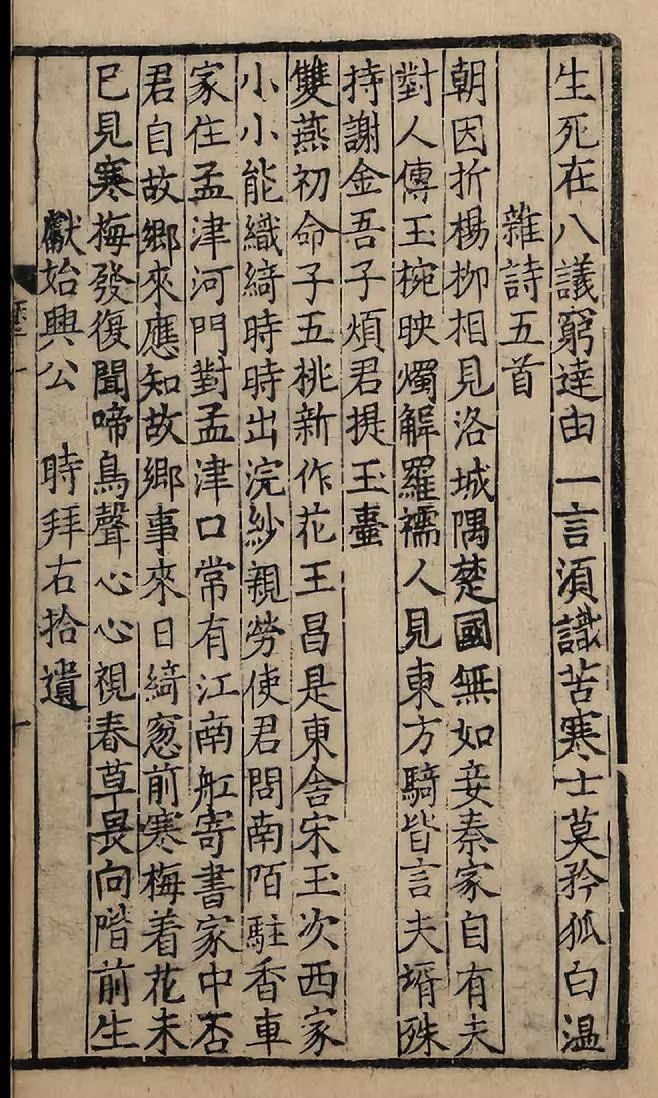 生死在八議窮達由一言湏識苦寒士莫矜狐白温
雜詩五首
朝因折楊柳相見洛城隅楚國無如妾秦家自有夫
對人傳玉椀映燭解羅襦人見東方騎皆言夫壻殊
持謝金吾子煩君提玉壷
雙燕初命子五桃新作花王昌是東舍宋玉次西家
小小能織綺時時出浣紗親勞使君問南陌駐香車
家住孟津河門對孟津口常有江南舡寄書家中否
君自故鄉來應知故鄉事來日綺窓前寒梅着花未
已見寒梅發復聞啼鳥聲心心視春草畏向階前生
獻始興公 時拜右拾遺